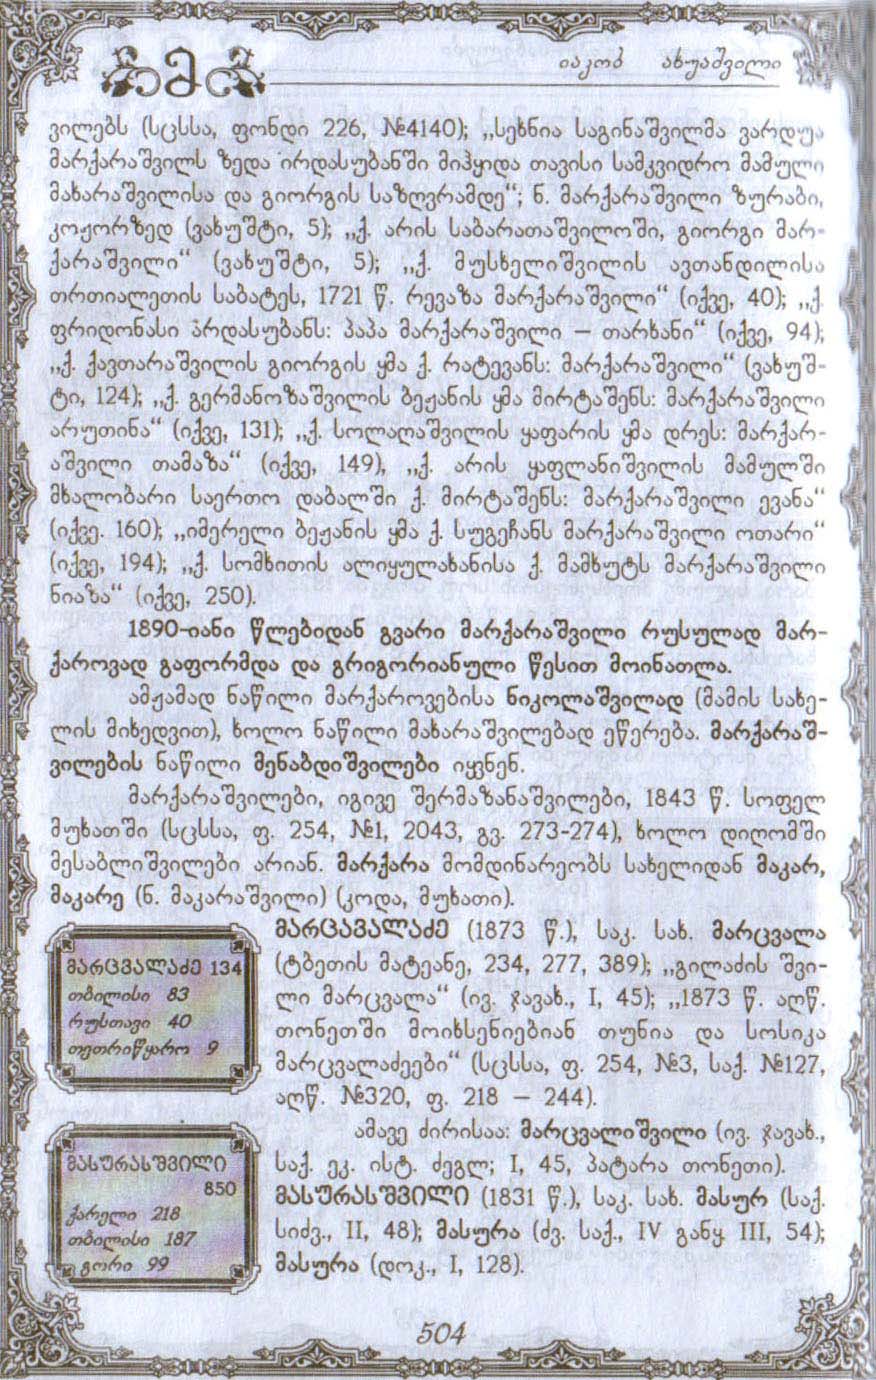 მ
იაკობ ახუაშვილი
ვილებს (სცსსა, ფონდი 226, №4140); „სეხნია საგინაშვილმა ვარდუა
მარქარაშვილს ზედა ირდასუბანში მიჰყიდა თავისი სამკვიდრო მამული
მახარაშვილისა და გიორგის საზღვრამდე“; ნ. მარქარაშვილი ზურაბი,
კოჟორზედ (ვახუშტი, 5); „ქ. არის საბარათაშვილოში, გიორგი მარ-
ქარაშვილი“ (ვახუშტი, 5); „ქ. მუსხელიშვილის ავთანდილისა
თრთიალეთის საბატეს, 1721 წ. რევაზა მარქარაშვილი“ (იქვე, 40); „ქ.
ფრიდონასი არდასუბანს: პაპა მარქარაშვილი – თარხანი“ (იქვე, 94);
„ქ. ქავთარაშვილის გიორგის ყმა ქ. რატევანს: მარქარაშვილი“ (ვახუშ-
ტი, 124); „ქ. გერმანოზაშვილის ბეჟანის ყმა მირტაშენს: მარქარაშვილი
არუთინა“ (იქვე, 131); „ქ. სოლაღაშვილის ყაფარის ყმა დრეს: მარქარ-
აშვილი თამაზა“ (იქვე, 149), „ქ. არის ყაფლანიშვილის მამულში
მხალობარი საერთო დაბალში ქ. მირტაშენს: მარქარაშვილი ევანა“
(იქვე. 160); „იმერელი ბეჟანის ყმა ქ. სუგეჩანს მარქარაშვილი ოთარი“
(იქვე, 194); „ქ. სომხითის ალიყულახანისა ქ. მამხუტს მარქარაშვილი
ნიაზა“ (იქვე, 250).
1890-იანი წლებიდან გვარი მარქარაშვილი რუსულად მარ-
ქაროვად გაფორმდა და გრიგორიანული წესით მოინათლა.
ამჟამად ნაწილი მარქაროვებისა ნიკოლაშვილად (მამის სახე-
ლის მიხედვით), ხოლო ნაწილი მახარაშვილებად ეწერება. მარქარაშ-
ვილების ნაწილი მენაბდიშვილები იყვნენ.
მარქარაშვილები, იგივე შერმაზანაშვილები, 1843 წ. სოფელ
მუხათში (სცსსა, ფ. 254, №1, 2043, გვ. 273-274), ხოლო დიღომში
მესაბლიშვილები არიან. მარქარა მომდინარეობს სახელიდან მაკარ,
მაკარე (ნ. მაკარაშვილი) (კოდა, მუხათი).
მარცვალაძე 134
თბილისი 83
რუსთავი 40
თეთრიწყარო 9
მარცვალაძე (1873 წ.), საკ. სახ. მარცვალა
(ტბეთის მატეანე, 234, 277, 389); „გილაძის შვი-
ლი მარცვალა“ (ივ. ჯავახ., I, 45); „1873 წ. აღწ.
თონეთში მოიხსენიებიან თუნია და სოსიკა
მარცვალაძეები“ (სცსსა, ფ. 254, №3, საქ. №127,
აღწ. №320, ფ. 218 – 244).
ამავე ძირისაა: მარცვალიშვილი (ივ. ჯავახ.,
საქ. ეკ. ისტ. ძეგლ; I, 45, პატარა თონეთი).
მასურასშვილი
850
ქარელი 218
თბილისი 187
გორი 99
მასურასშვილი (1831 წ.), საკ. სახ. მასურ (საქ.
სიძვ., II, 48); მასურა (ძვ. საქ., IV განყ. III, 54);
მასურა (დოკ., I, 128).
504